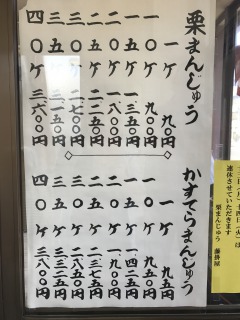 栗まんじゅう
一ケ 九〇円
一〇ケ 九〇〇円
一五ケ 一三五〇円
二〇ケ 一八〇〇円
二五ケ 二二五〇円
三〇ケ 二七〇〇円
三五ケ 三一五〇円
四〇ケ 三六〇〇円
かすてらまんじゅう
一ケ 九五円
一〇ケ 九五〇円
一五ケ 一四二五円
二〇ケ 一九〇〇円
二五ケ 二三七五円
三〇ケ 二八五〇円
三五ケ 三三二五円
四〇ケ 三八〇〇円
十四日(火)は
連休させていただきます
栗まんじゅう